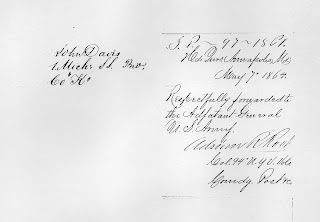 John Davis
1. Michn SS. Pvt.
Co "K"
S. P. ~ 97 ~ 1864.
Hd. Qurs Annapolis, Md
May 7" 1864.
Respectfully forwarded to
the Adjutant General
U. S. Army.
Adrian R Root
Col. 94" N. Y. Vols
Comdg Post &c